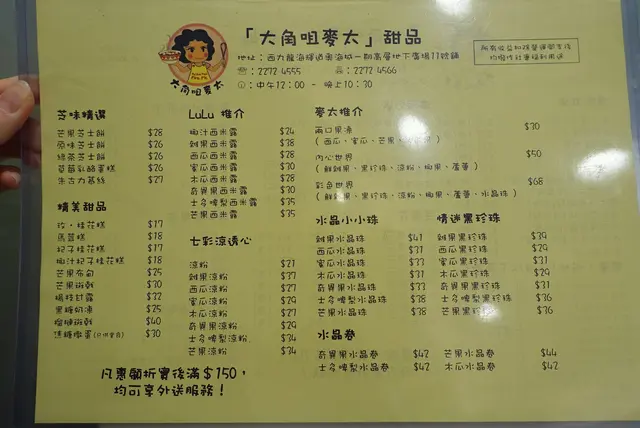 「大角咀麥太」甜品
地址：西九龍海輝道奧海城一期高層地下廣場11號舖
：2272 4555 ：2272 4566
：中午12:00 - 晚上10:30
所有收益扣除營運開支後
均撥作社會福利用途
大角咀麥太
芝味精選
芒果芝士餅 $28
原味芝士餅 $26
綠茶芝士餅 $26
草莓乳酪蛋糕 $26
朱古力慕絲 $27
精美甜品
玫・桂花糕 $17
馬荳糕 $18
杞子桂花糕 $17
椰汁杞子桂花糕 $18
芒果布甸 $25
芒果班戟 $30
楊枝甘露 $32
黑糖奶凍 $25
榴槤班戟 $40
焦糖燉蛋 $30
LuLu 推介
椰汁西米露 $24
雜果西米露 $38
西瓜西米露 $28
蜜瓜西米露 $30
木瓜西米露 $28
奇異果西米露 $30
士多啤梨西米露 $35
芒果西米露 $35
七彩涼透心
涼粉 $21
雜果涼粉 $37
西瓜涼粉 $27
蜜瓜涼粉 $29
木瓜涼粉 $27
奇異果涼粉 $29
士多啤梨涼粉 $34
芒果涼粉 $34
麥太推介
兩口果漁 $30
( 西瓜、蜜瓜、芒果
內心世界 $50
( 鮮雜果、黑珍珠、涼粉、椰果、蘆薈 )
彩色世界 $68
( 鮮雜果、黑珍珠、涼粉、椰果、蘆薈、水晶珠 )
水晶小小珠
雜果水晶珠 $41
西瓜水晶珠 $31
蜜瓜水晶珠 $33
木瓜水晶珠 $31
奇異果水晶珠 $33
士多啤梨水晶珠 $38
芒果水晶珠 $38
情迷黑珍珠
雜果黑珍珠 $39
西瓜黑珍珠 $29
蜜瓜黑珍珠 $31
木瓜黑珍珠 $29
奇異果黑珍珠 $31
士多啤梨黑珍珠 $36
芒果黑珍珠 $36
水晶卷
奇異果水晶卷 $42 芒果水晶卷 $44
士多啤梨水晶卷 $42 木瓜水晶卷 $42
凡惠顧折實後滿＄150，
均可享外送服務！